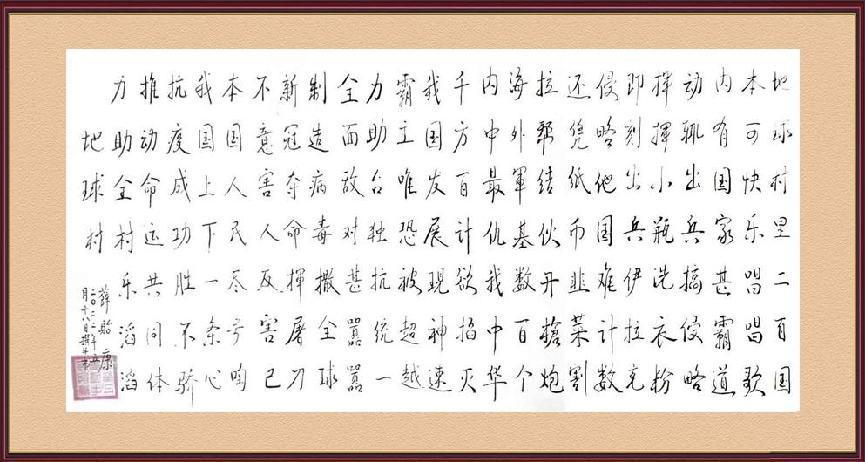 地球村里二百国
本可快乐唱唱歌
内有国家甚霸道
动辄出兵搞侵略
挥揮小瓶洗衣粉
即刻出兵伊拉克
侵略他国难计数
还凭纸币韭菜割
拉帮结伙开槍炮
海外軍基数百个
内中最仇我中华
千方百计欲掐灭
我国发展现神速
霸主唯恐被超越
力助台独抗统一
全面敌对甚嚣嚣
制造病毒撒全球
新冠夺命揮屠刀
不意害人反害己
本国人民尽号啕
我国上下一条心
抗疫成功胜不骄
推动命运共同体
力助全村乐滔滔
地球村
薛贻康
二〇二二年五
月十八日撰并书